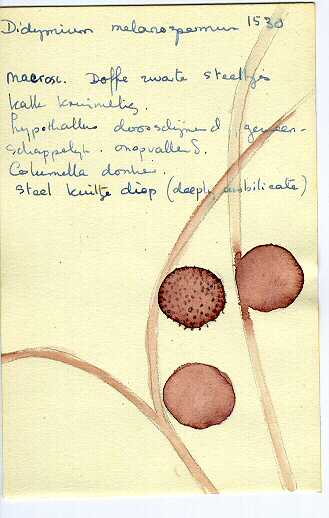 Didymium melanospermum 1530
macrosc. Doffe zwarte steeltjes
kalk kruimelig.
hypothallus doorschijnend gemeen-
schappelijk. onopvallend.
Columella donker.
Steel kuiltje diep (deeply umbilicate)